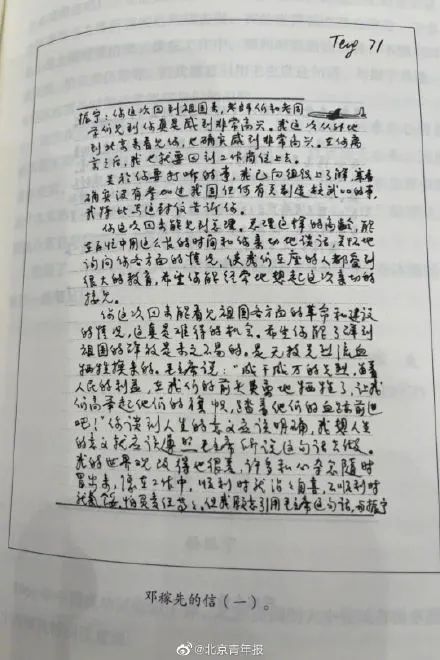 Teng 71
振宁:你这次回到祖国来,老师们和老同
学们见到你真是感到非常高兴。我这次从外地
到北京来看见你,也确实感到非常高兴。在你离
京之后,我也就要回到工作岗位上去。
关于你要打听的事,我已向组织上了解,寒春
确实没有参加过我国任何有关制造核武器的事,
我特地写这封信告诉你。
你这次回来能见到总理,总理这样的高龄,能
在百忙中用这么长的时间和你亲切地谈话,关怀地
询问你各方面的情况,使我们在座的人都受到
很大的教育,希望你能经常地想起这次亲切的
接见。
你这次回来能看见祖国各方面的革命和建设
的情况,这真是难得的机会。希望你能了解到
祖国的解放是来之不易的。是无数先烈流血
牺牲换来的。毛主席说:“成千成万的先烈,为着
人民的利益,在我们的前头英勇地牺牲了,让我
们高举起他们的旗帜,踏着他们的血迹前进
吧!”你谈到人生的意义应该明确,我想人生
的意义就应该遵照毛主席所说这句话去做。
我的世界观改得也很差,许多私心杂念随时
冒出来,像在工作中,顺利时就沾沾自喜,不顺利时
就气馁,怕负责任等等,但我愿意引用毛主席这句话,与振宁
邓稼先的信(一)。
@北京青年报